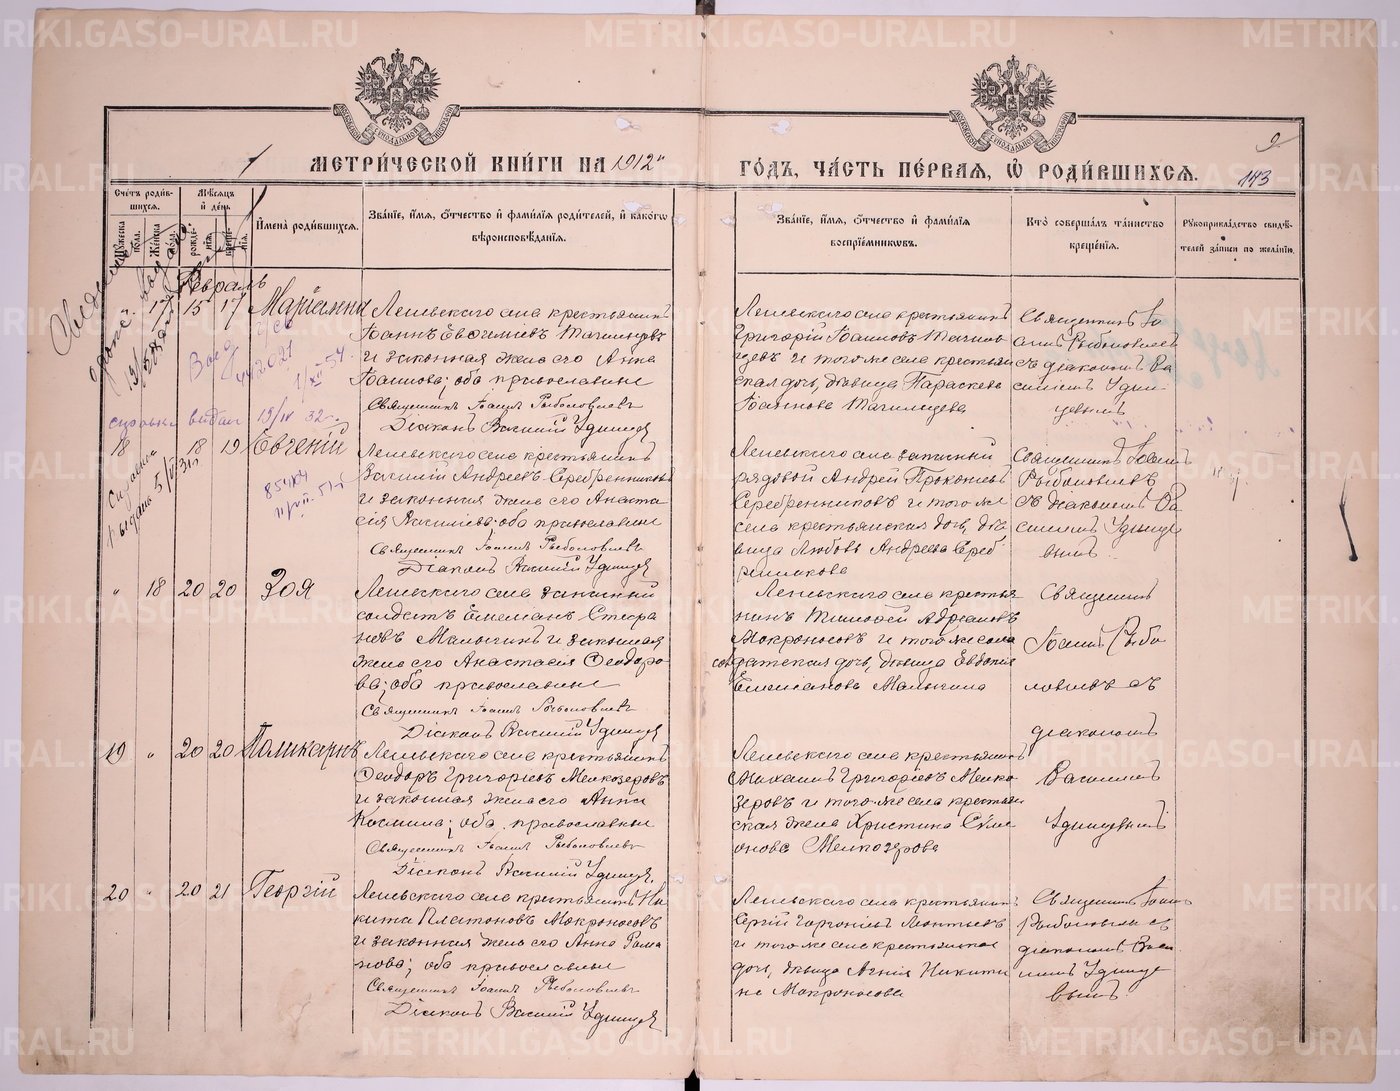 МЕТРИ́ЧЕСКОЙ КНИ́ГИ НА 1912й
ГО́ДЪ, ЧА́СТЬ ПЕ́РВАЯ, Ѡ РОДИ́ВШИХСЯ.
9
143
Сче́тъ роди́вшихся.
Му́жеска пола.
Же́нска пола.
Мѣ́сяцъ и́ де́нь.
рожде́нїя.
креще́нїя.
И́мена роди́вшихся.
Зва́нїе, и́мя, о́тчество и́ фами́лїя роди́телей, и́ како́гѡ
вѣроисповѣ́данїя.
Зва́нїе, и́мя, о́тчество и́ фами́лїя
воспрїе́мниковъ.
Кто̀ соверша́лъ та́инство
креще́нїя.
Рꙋкоприкла́дство свидѣ́телей за́писи по жела́нїю.
Февраль
17 15 17 Марiамна
Лепевскаго села крестьянинъ
Іоаннъ Евѳимiевъ Тагильцевъ
и законная жена его Анна
Іоаннова; оба православные
Священникъ Іоаннъ Рыболовлевъ
Дiаконъ Василiй Удинцевъ
Лепевскаго села крестьянинъ
Григорiй Іоанновъ Тагильцевъ и того же села крестьянская дочь, дѣвица Параскева
Іоаннова Тагильцева
Священникъ Іоаннъ Рыболовлевъ
съ дiакономъ Василiемъ Удинцевымъ
справка выдан 19/IV 32 г.
18 18 19 Евгенiй
Лепевскаго села крестьянинъ
Василiй Андреевъ Серебренниковъ
и законная жена его Анастасiя
; оба православные
Священникъ Іоаннъ Рыболовлевъ
Дiаконъ Василiй Удинцевъ
Лепевскаго села запасный
рядовой Андрей Прокопьевъ
Серебренниковъ и того же
села крестьянская дочь, дѣвица Любовь Андреева Серебренникова
Священникъ Іоаннъ
Рыболовлевъ
съ дiакономъ Василiемъ Удинцевымъ
" 18 20 20 Зоя
Лепевскаго села запасный
солдатъ Емелiанъ Стефановъ Малыгинъ и законная
жена его Анастасiя Ѳеодорова; оба православные
Священникъ Іоаннъ Рыболовлевъ
Дiаконъ Василiй Удинцевъ
Лепевскаго села крестьянинъ Тимоѳей Адрiановъ
Мокроносовъ и того же села
солдатская дочь, дѣвица Евдокiя
Емелiанова Малыгина
Священникъ
Іоаннъ Рыболовлевъ съ
дiакономъ
Василiемъ
Удинцевымъ
19 " 20 20 Поликарпъ
Лепевскаго села крестьянинъ
Ѳеодоръ Григорьевъ Мелкозеровъ
и законная жена его Анна
Космина; оба православные
Священникъ Іоаннъ Рыболовлевъ
Дiаконъ Василiй Удинцевъ.
Лепевскаго села крестьянинъ
Михаилъ Григорьевъ Мелкозеровъ и того же села крестьянская жена Христина Симеонова Мелкозерова
20 " 20 21 Георгiй
Лепевскаго села крестьянинъ Никита Платоновъ Мокроносовъ
и законная жена его Анна Романова; оба православные
Священникъ Іоаннъ Рыболовлевъ
Дiаконъ Василiй Удинцевъ
Лепевскаго села крестьянинъ
Сергiй Леонтьевъ
и того же села крестьянская
дочь, дѣвица Агнiя Никитина Мокроносова
Священникъ Іоаннъ
Рыболовлевъ съ
дiакономъ Василiемъ Удинцевымъ.
METRIKI.GASO-URAL.RU